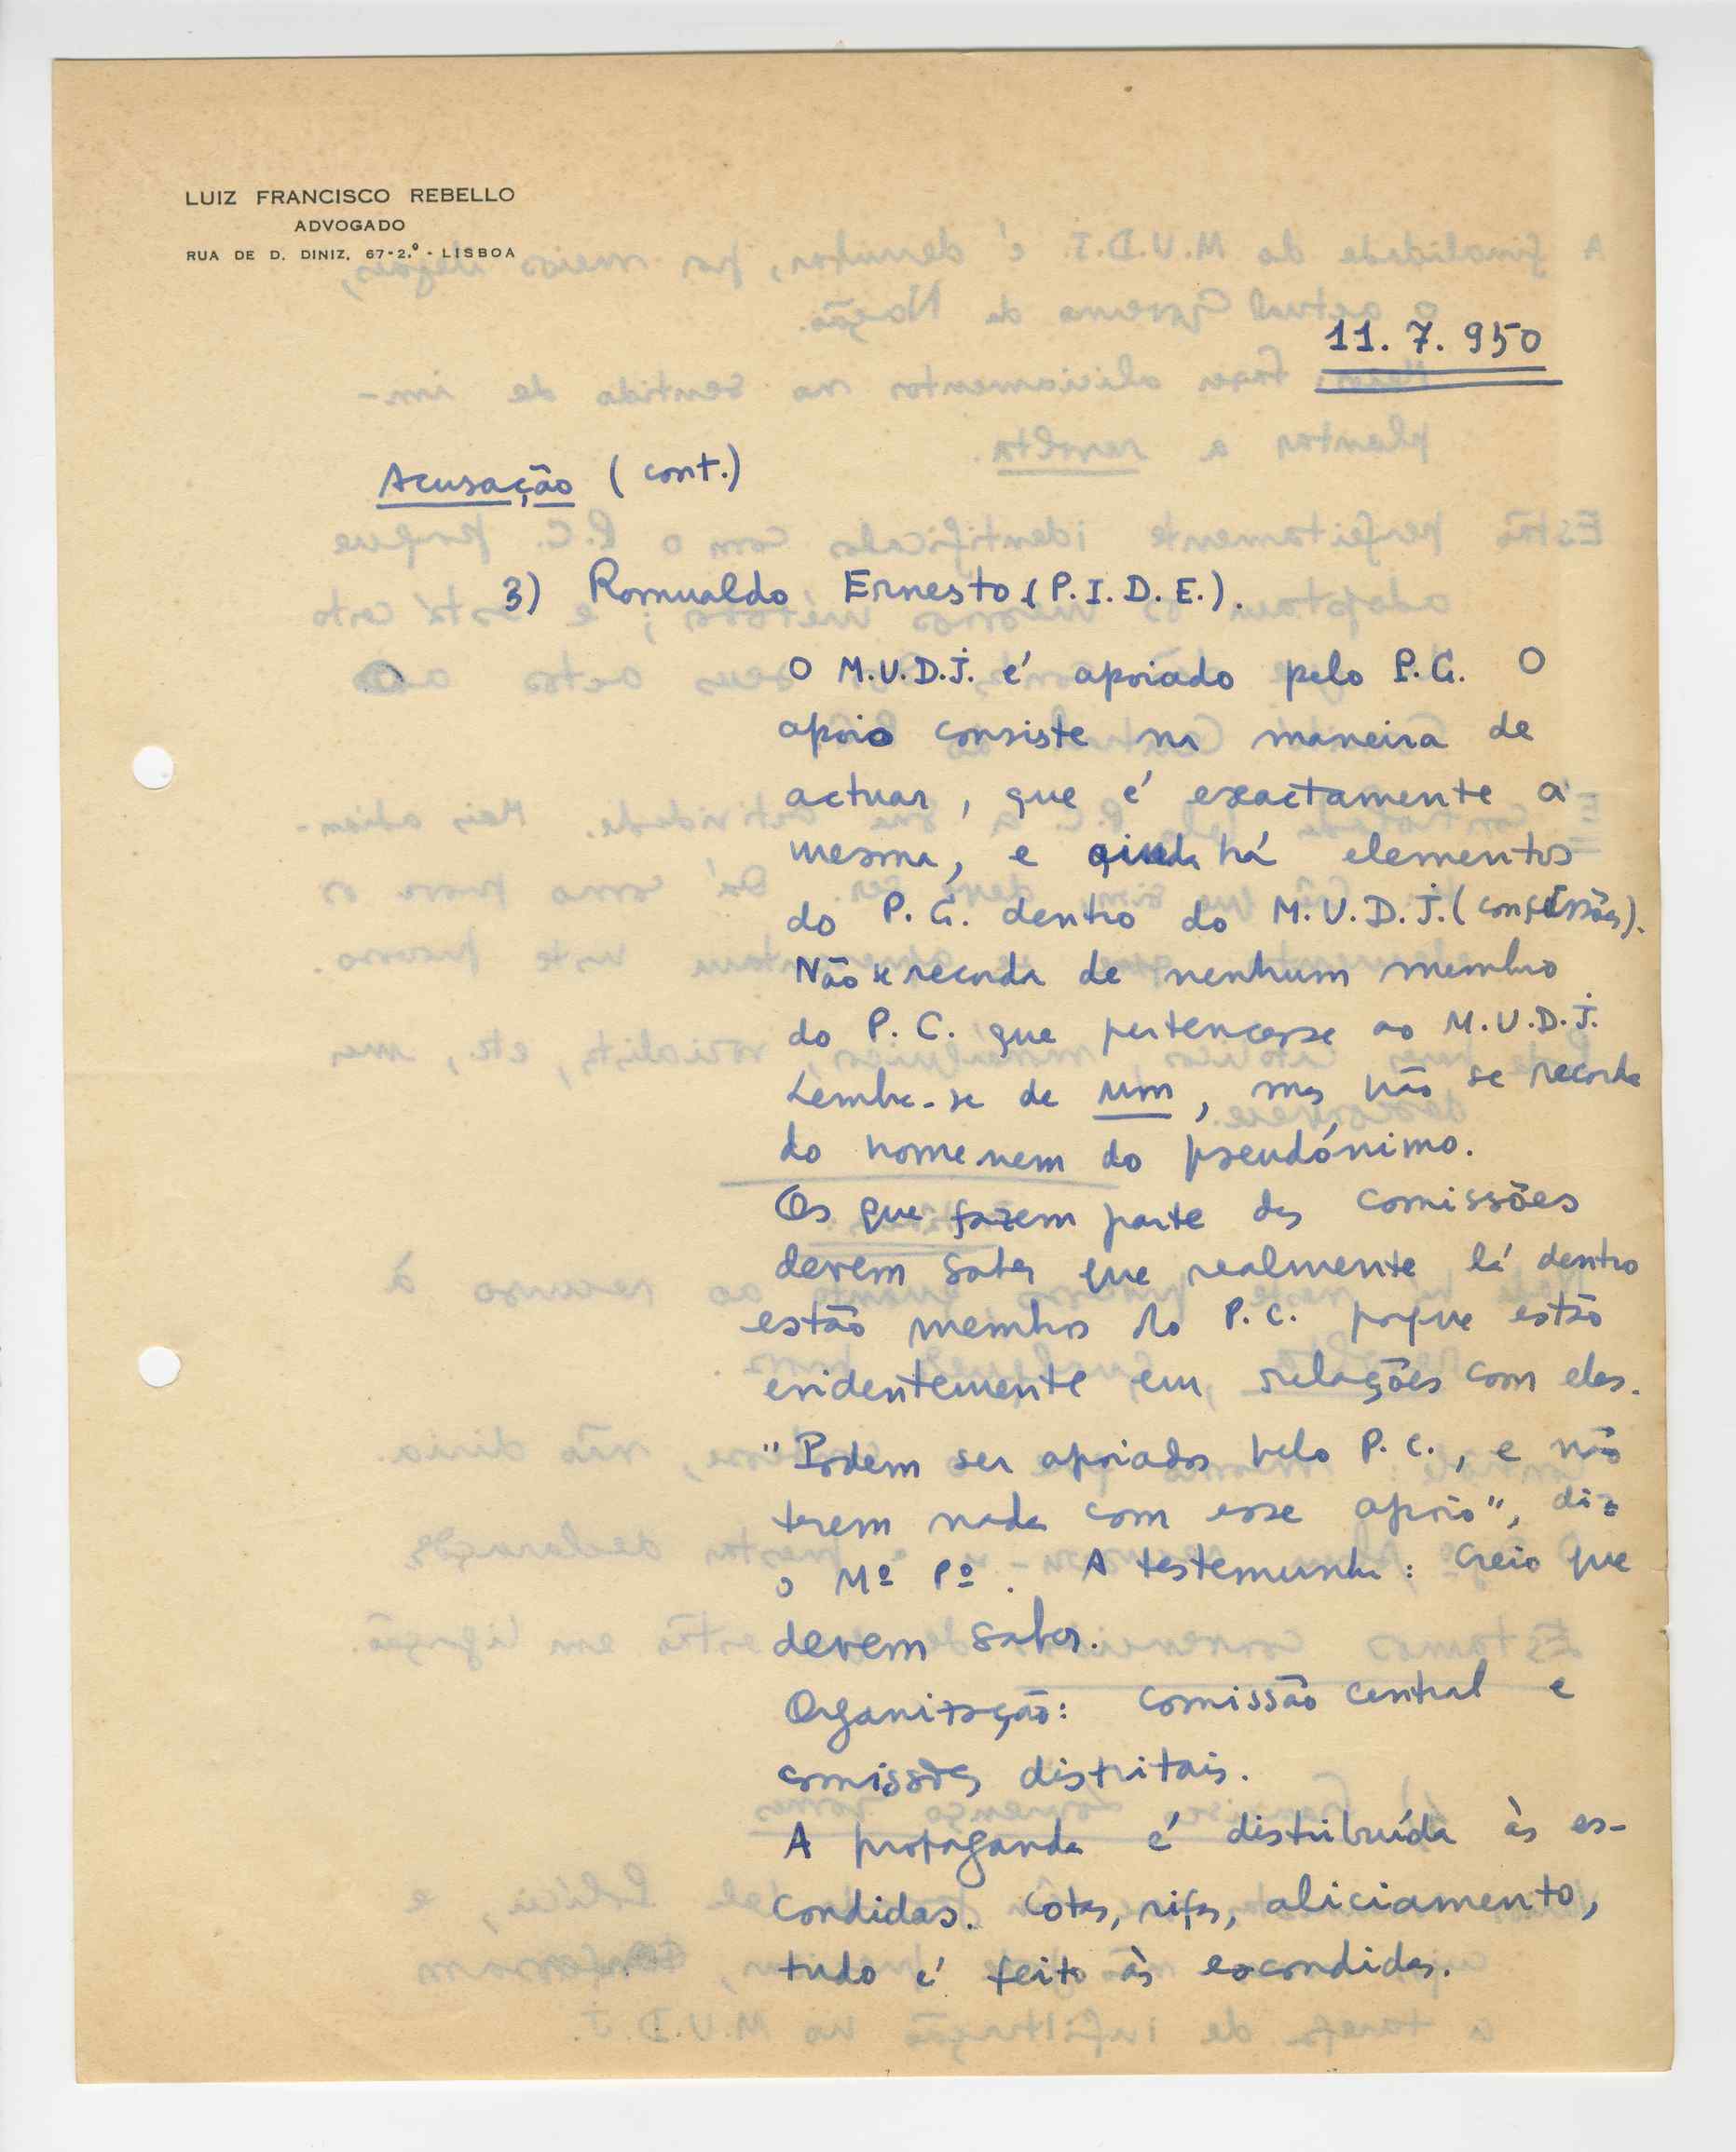 LUIZ FRANCISCO REBELLO
ADVOGADO
RUA DE D. DINIZ, 67-2.º - LISBOA
11. 7. 950
Acusação (cont.)
3) Romualdo Ernesto (P.I.D.E.).
O M.U.D.J. é apoiado pelo P.C. O
apoio consiste na maneira de
actuar, que é exactamente a
mesma, e ainda há elementos
do P.C. dentro do M.U.D.J. (confissões).
Não se recorda de nenhum membro
do P.C. que pertencesse ao M.U.D.J.
Lembra-se de um, mas não se recorda
do nome nem do pseudónimo.
Os que fazem parte das comissões
devem saber que realmente lá dentro
estão membros do P.C. porque estão
evidentemente em relações com eles.
"Podem ser apoiados pelo P.C., e não
terem nada com esse apoio", diz
o Mº Pº. A testemunha: Creio que
devem saber.
Organização: comissão central e
comissões distritais.
A propaganda é distribuída às es-
condidas. Cotas, rifas, aliciamento,
tudo é feito às escondidas.